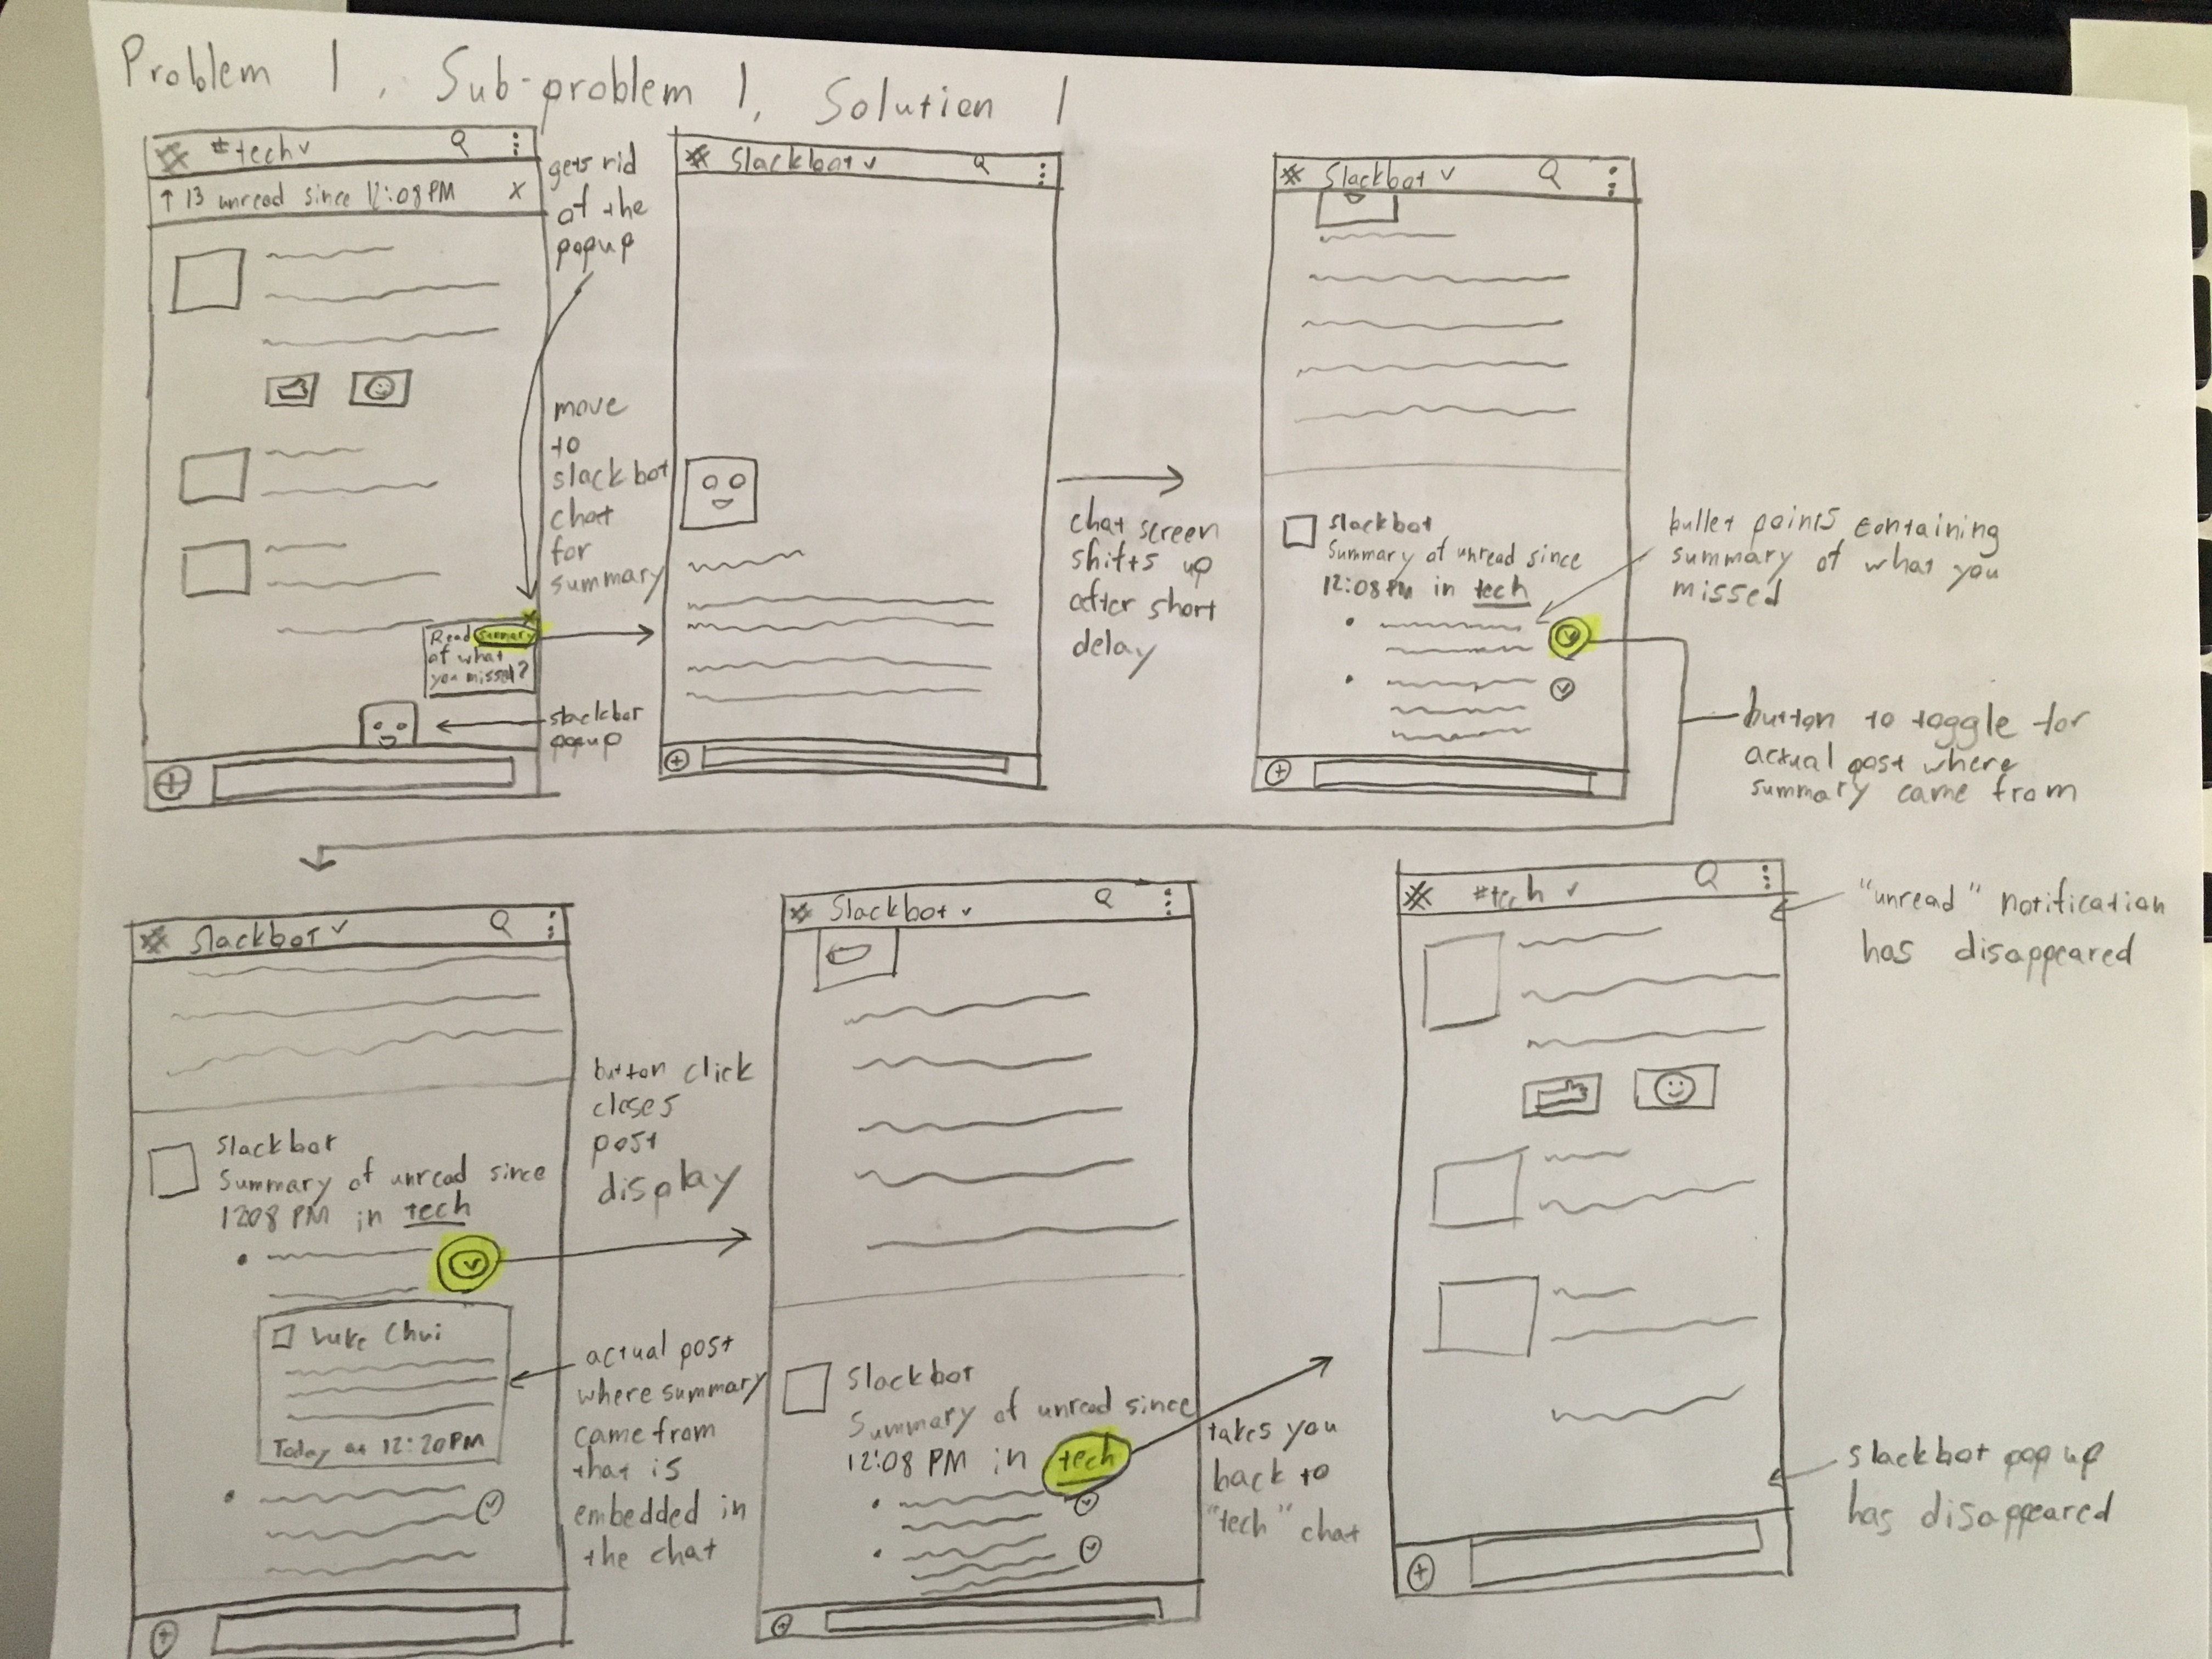 Problem 1, Sub-problem 1, Solution 1
#tech
↑ 13 unread since 12:08 PM X
Read summary
of what
you missed?
gets rid
of the
popup
move
to
slackbot
chat
for
summary
slackbot
popup
Slackbot
chat screen
shifts up
after short
delay
Slackbot
slackbot
Summary of unread since
12:08 PM in tech
bullet points containing
summary of what you
missed
button to toggle for
actual post where
summary came from
Slackbot
Slackbot
Summary of unread since
1208 PM in tech
Luke Chui
Today at 12:20PM
button click
closes
post
display
actual post
where summary
came from
that is
embedded in
the chat
Slackbot
Slackbot
Summary of unread since
12:08 PM in tech
takes you
back to
"tech" chat
#tech
"unread" notification
has disappeared
slackbot pop up
has disappeared